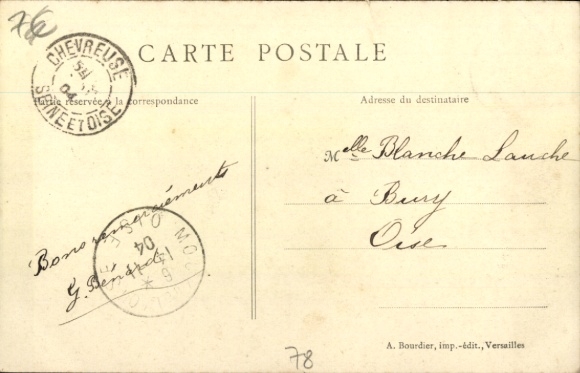 78
CARTE POSTALE
CHEVREUSE
04
SEINE ET OISE
Partie réservée à la correspondance
Adresse du destinataire
Melle Blanche Lauche
à Bury
Oise
Bons remerciements
G. Bénard
OISE
04
78
A. Bourdier, imp.-édit., Versailles